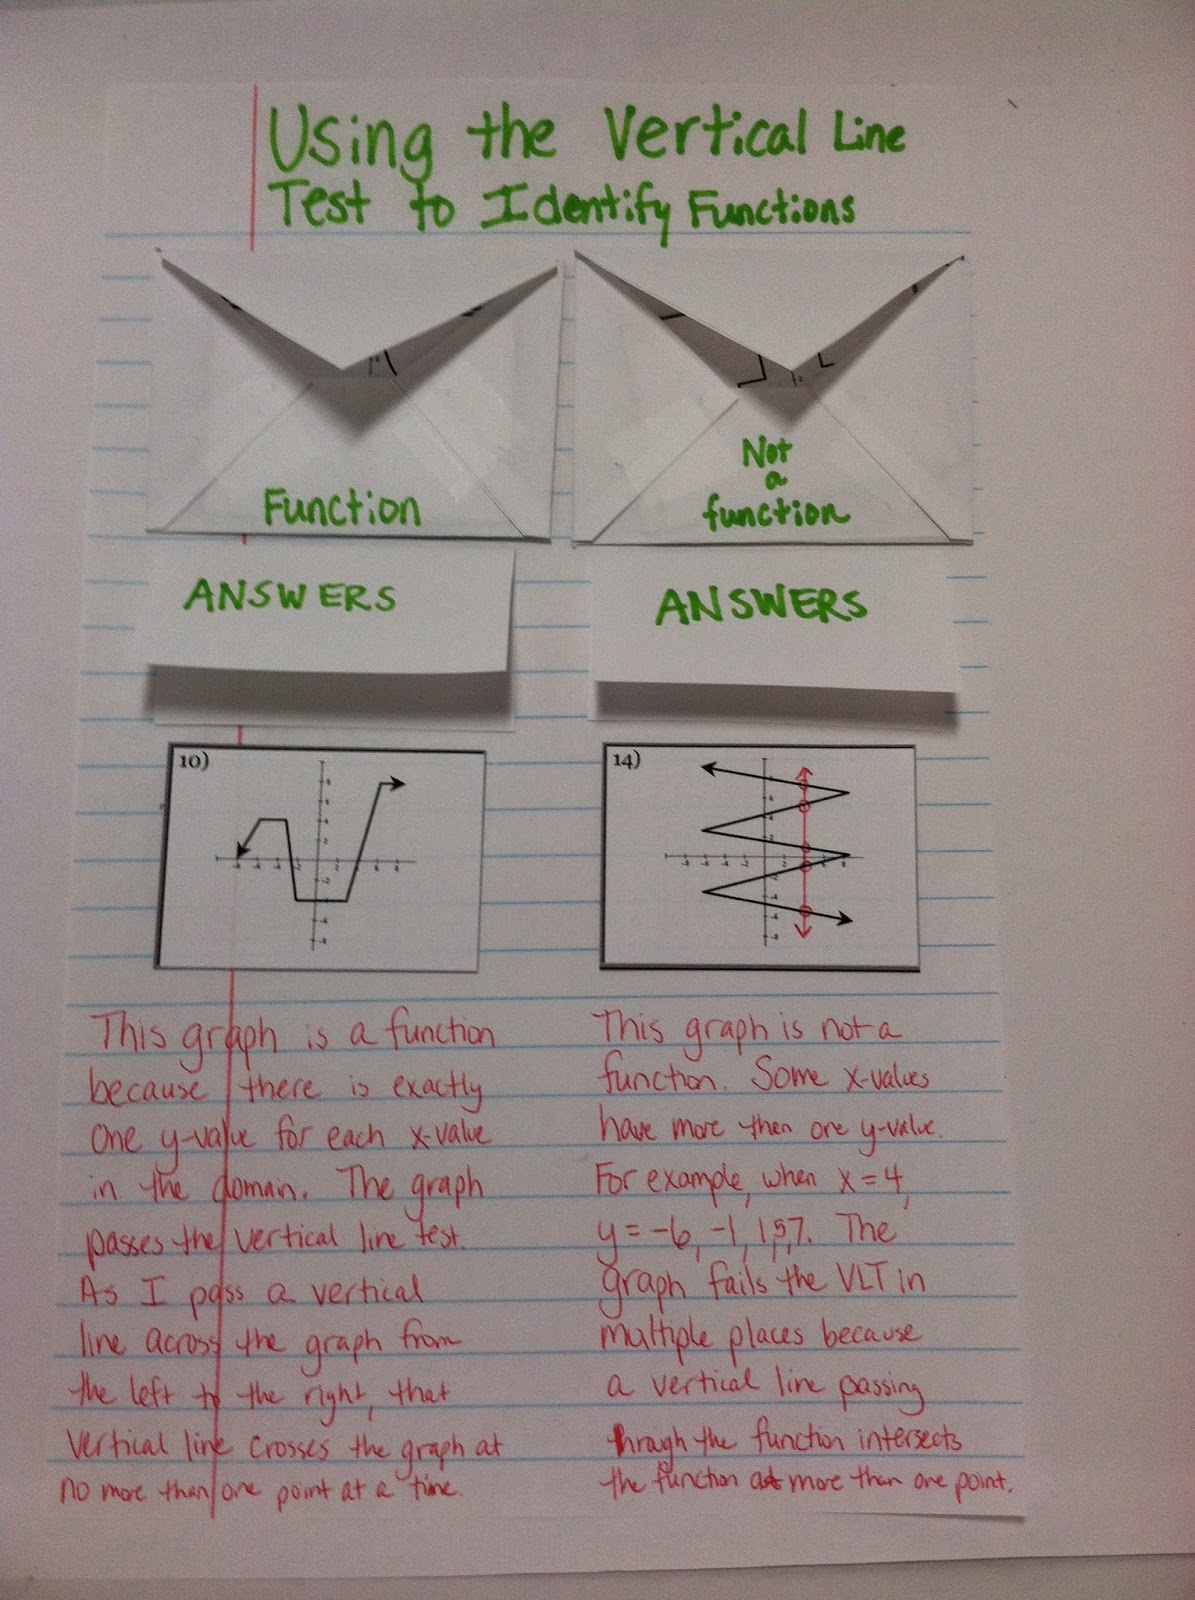 Using the Vertical Line
Test to Identify Functions
Function
Not
a
function
ANSWERS
ANSWERS
10)
14)
This graph is a function
because there is exactly
one y-value for each x-value
in the domain. The graph
passes the vertical line test.
As I pass a vertical
line across the graph from
the left to the right, that
vertical line crosses the graph at
no more than one point at a time.
This graph is not a
function. Some x-values
have more then one y-value.
For example, when x=4,
y=-6, -1, 1, 5, 7. The
graph fails the VLT in
multiple places because
a vertical line passing
through the function intersects
the function at more than one point.